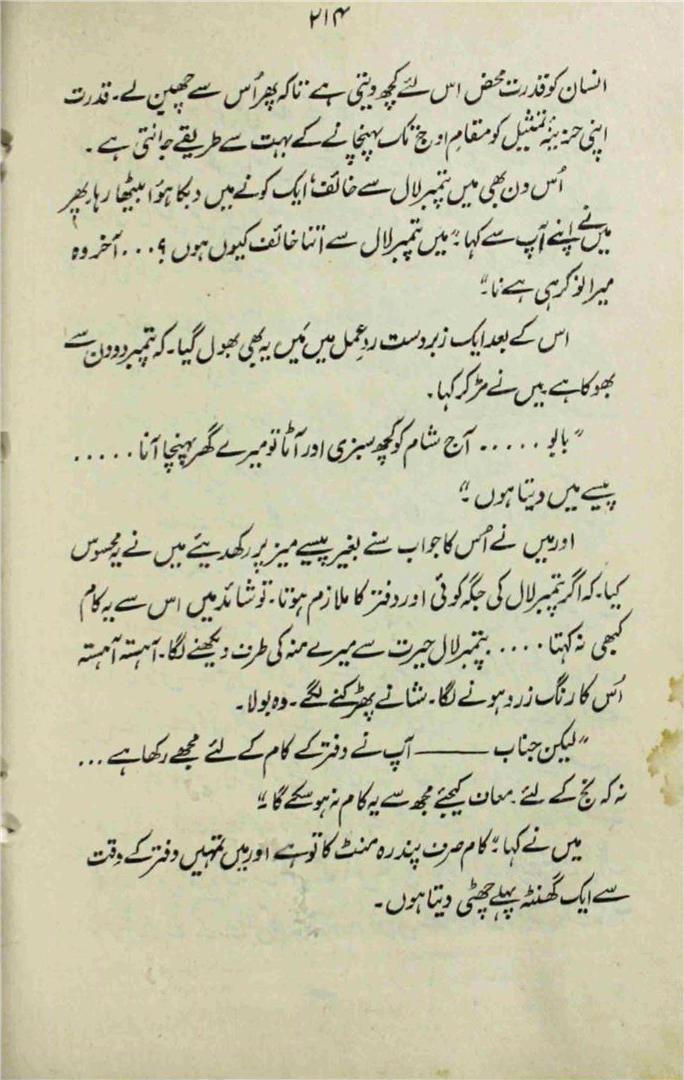 ۲۱۴
انسان کو قدرت محض اس لئے کچھ دیتی ہے تاکہ پھر اُس سے چھین لے۔ قدرت
اپنی حزینہ تمثیل کو مقامِ اوج تک پہنچانے کے بہت سے طریقے جانتی ہے۔
اُس دن بھی میں پتمبر لال سے خائف، ایک کونے میں دبکا ہوُا بیٹھا رہا۔ پھر
میں نے اپنے آپ سے کہا۔ "میں پتمبر لال سے اتنا خائف کیوں ہوں؟ ... آخر وہ
میرا نوکر ہی ہے نا۔"
اس کے بعد ایک زبردست ردِعمل میں مَیں یہ بھی بھول گیا۔ کہ پتمبر دو دن سے
بھوکا ہے۔ میں نے مڑ کر کہا۔
"بابو ..... آج شام کو کچھ سبزی اور آٹا تو میرے گھر پہنچا آنا .....
پیسے میں دیتا ہوں۔"
اور میں نے اُس کا جواب سنے بغیر پیسے میز پر رکھ دیئے میں نے یہ محسوس
کیا۔ کہ اگر پتمبر لال کی جگہ کوئی اور دفتر کا ملازم ہوتا۔ تو شائد میں اس سے یہ کام
کبھی نہ کہتا .... پتمبر لال حیرت سے میرے منہ کی طرف دیکھنے لگا۔ آہستہ آہستہ
اُس کا رنگ زرد ہونے لگا۔ شانے پھڑکنے لگے۔ وہ بولا۔
"لیکن جناب —— آپ نے دفتر کے کام کے لئے مجھے رکھا ہے ...
نہ کہ نج کے لئے۔ معاف کیجئے مجھ سے یہ کام نہ ہو سکے گا۔"
میں نے کہا۔ "کام صرف پندرہ منٹ کا تو ہے اور میں تمہیں دفتر کے وقت
سے ایک گھنٹہ پہلے چھٹی دیتا ہوں۔